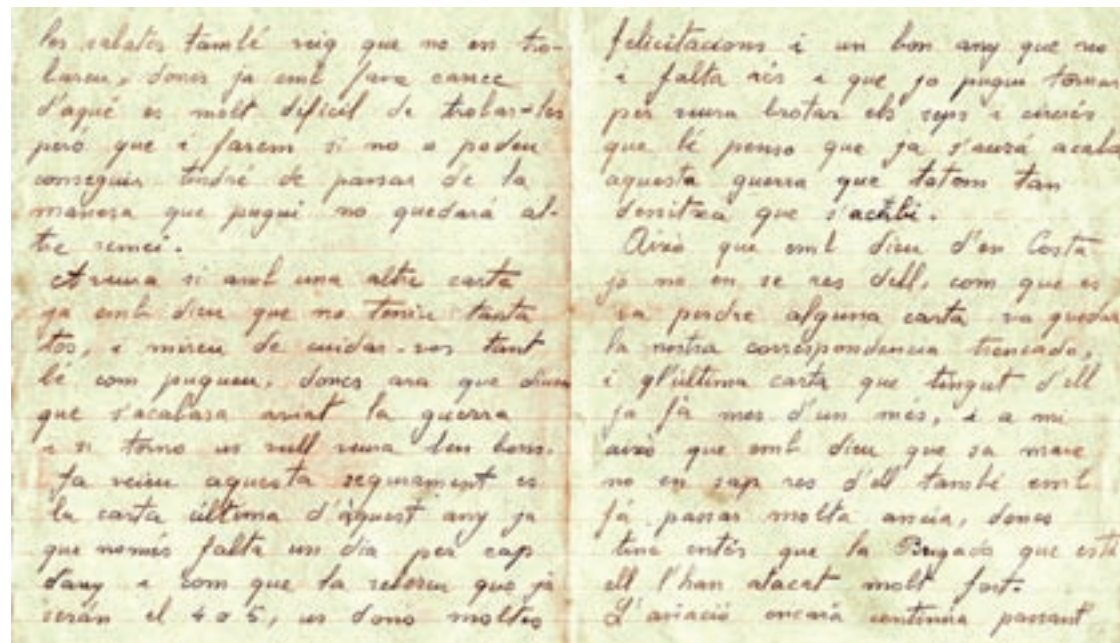 les sabates també veig que no en tro-
bareu, doncs ja emb fava carrec
d'aqué es molt dificil de trobar-les
peró que i farem si no o podeu
conseguir tindré de passar de la
manera que pugui no quedará al-
tre remei.
A veura si amb una altre carta
ja emb dieu que no teniu tanta
tos, i mireu de cuidar-vos tant
bé com pugueu, doncs ara que diuen
que s'acabara aviat la guerra
i si torno us vull veura ben bons.
Ja veieu aquesta segurament es
la carta última d'aquest any ja
que només falta un dia per cap
d'any i com que la rebereu que ja
serán el 4 o 5, us dono moltes
felicitacions i un bon any que no
i falta rés i que jo pugui tornar
per veura brotar els ceps i cirerés
que bé penso que ja s'aurá acaba
aquesta guerra que totom tan
dessitxa que s'acabi.
Aixó que emb dieu d'en Costa
jo no en se res dell, com que es
va perdre alguna carta va quedar
la nostra correspondencia trencada,
i l'última carta que tingut d'ell
ja fá mes d'un més, i a mi
aixó que emb dieu que sa mare
no en sap res d'ell també emb
fá passar molta ancia, doncs
tinc entés que la Brigada que està
ell l'han atacat molt fort.
L'aviació encara continua passant